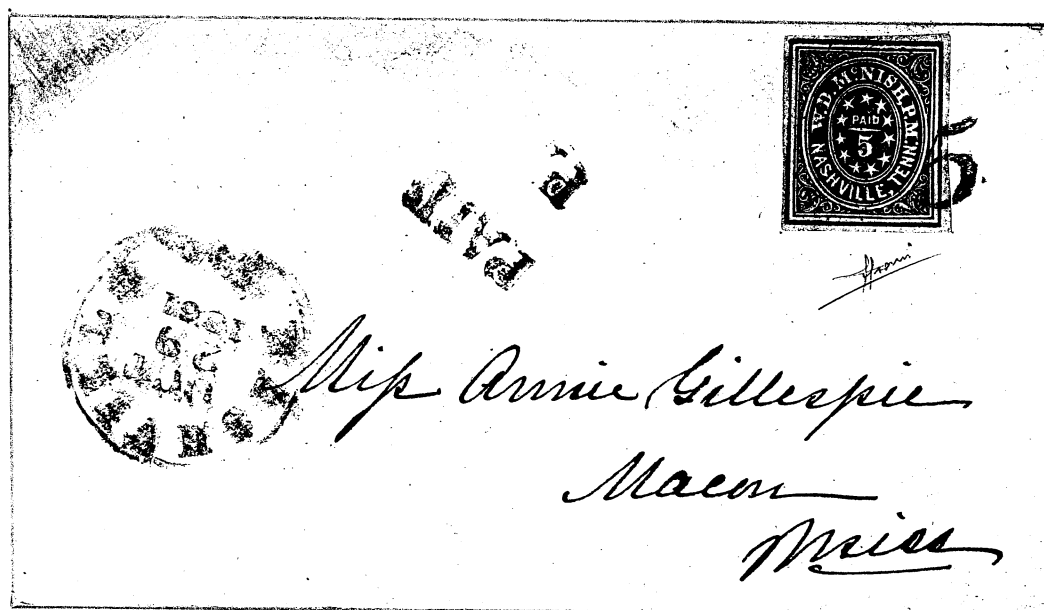 W.D. McNISH. P.M.
PAID
5
NASHVILLE, TENN.
5.
PAID
1861
Miss Annie Gillespie
Macon
Miss